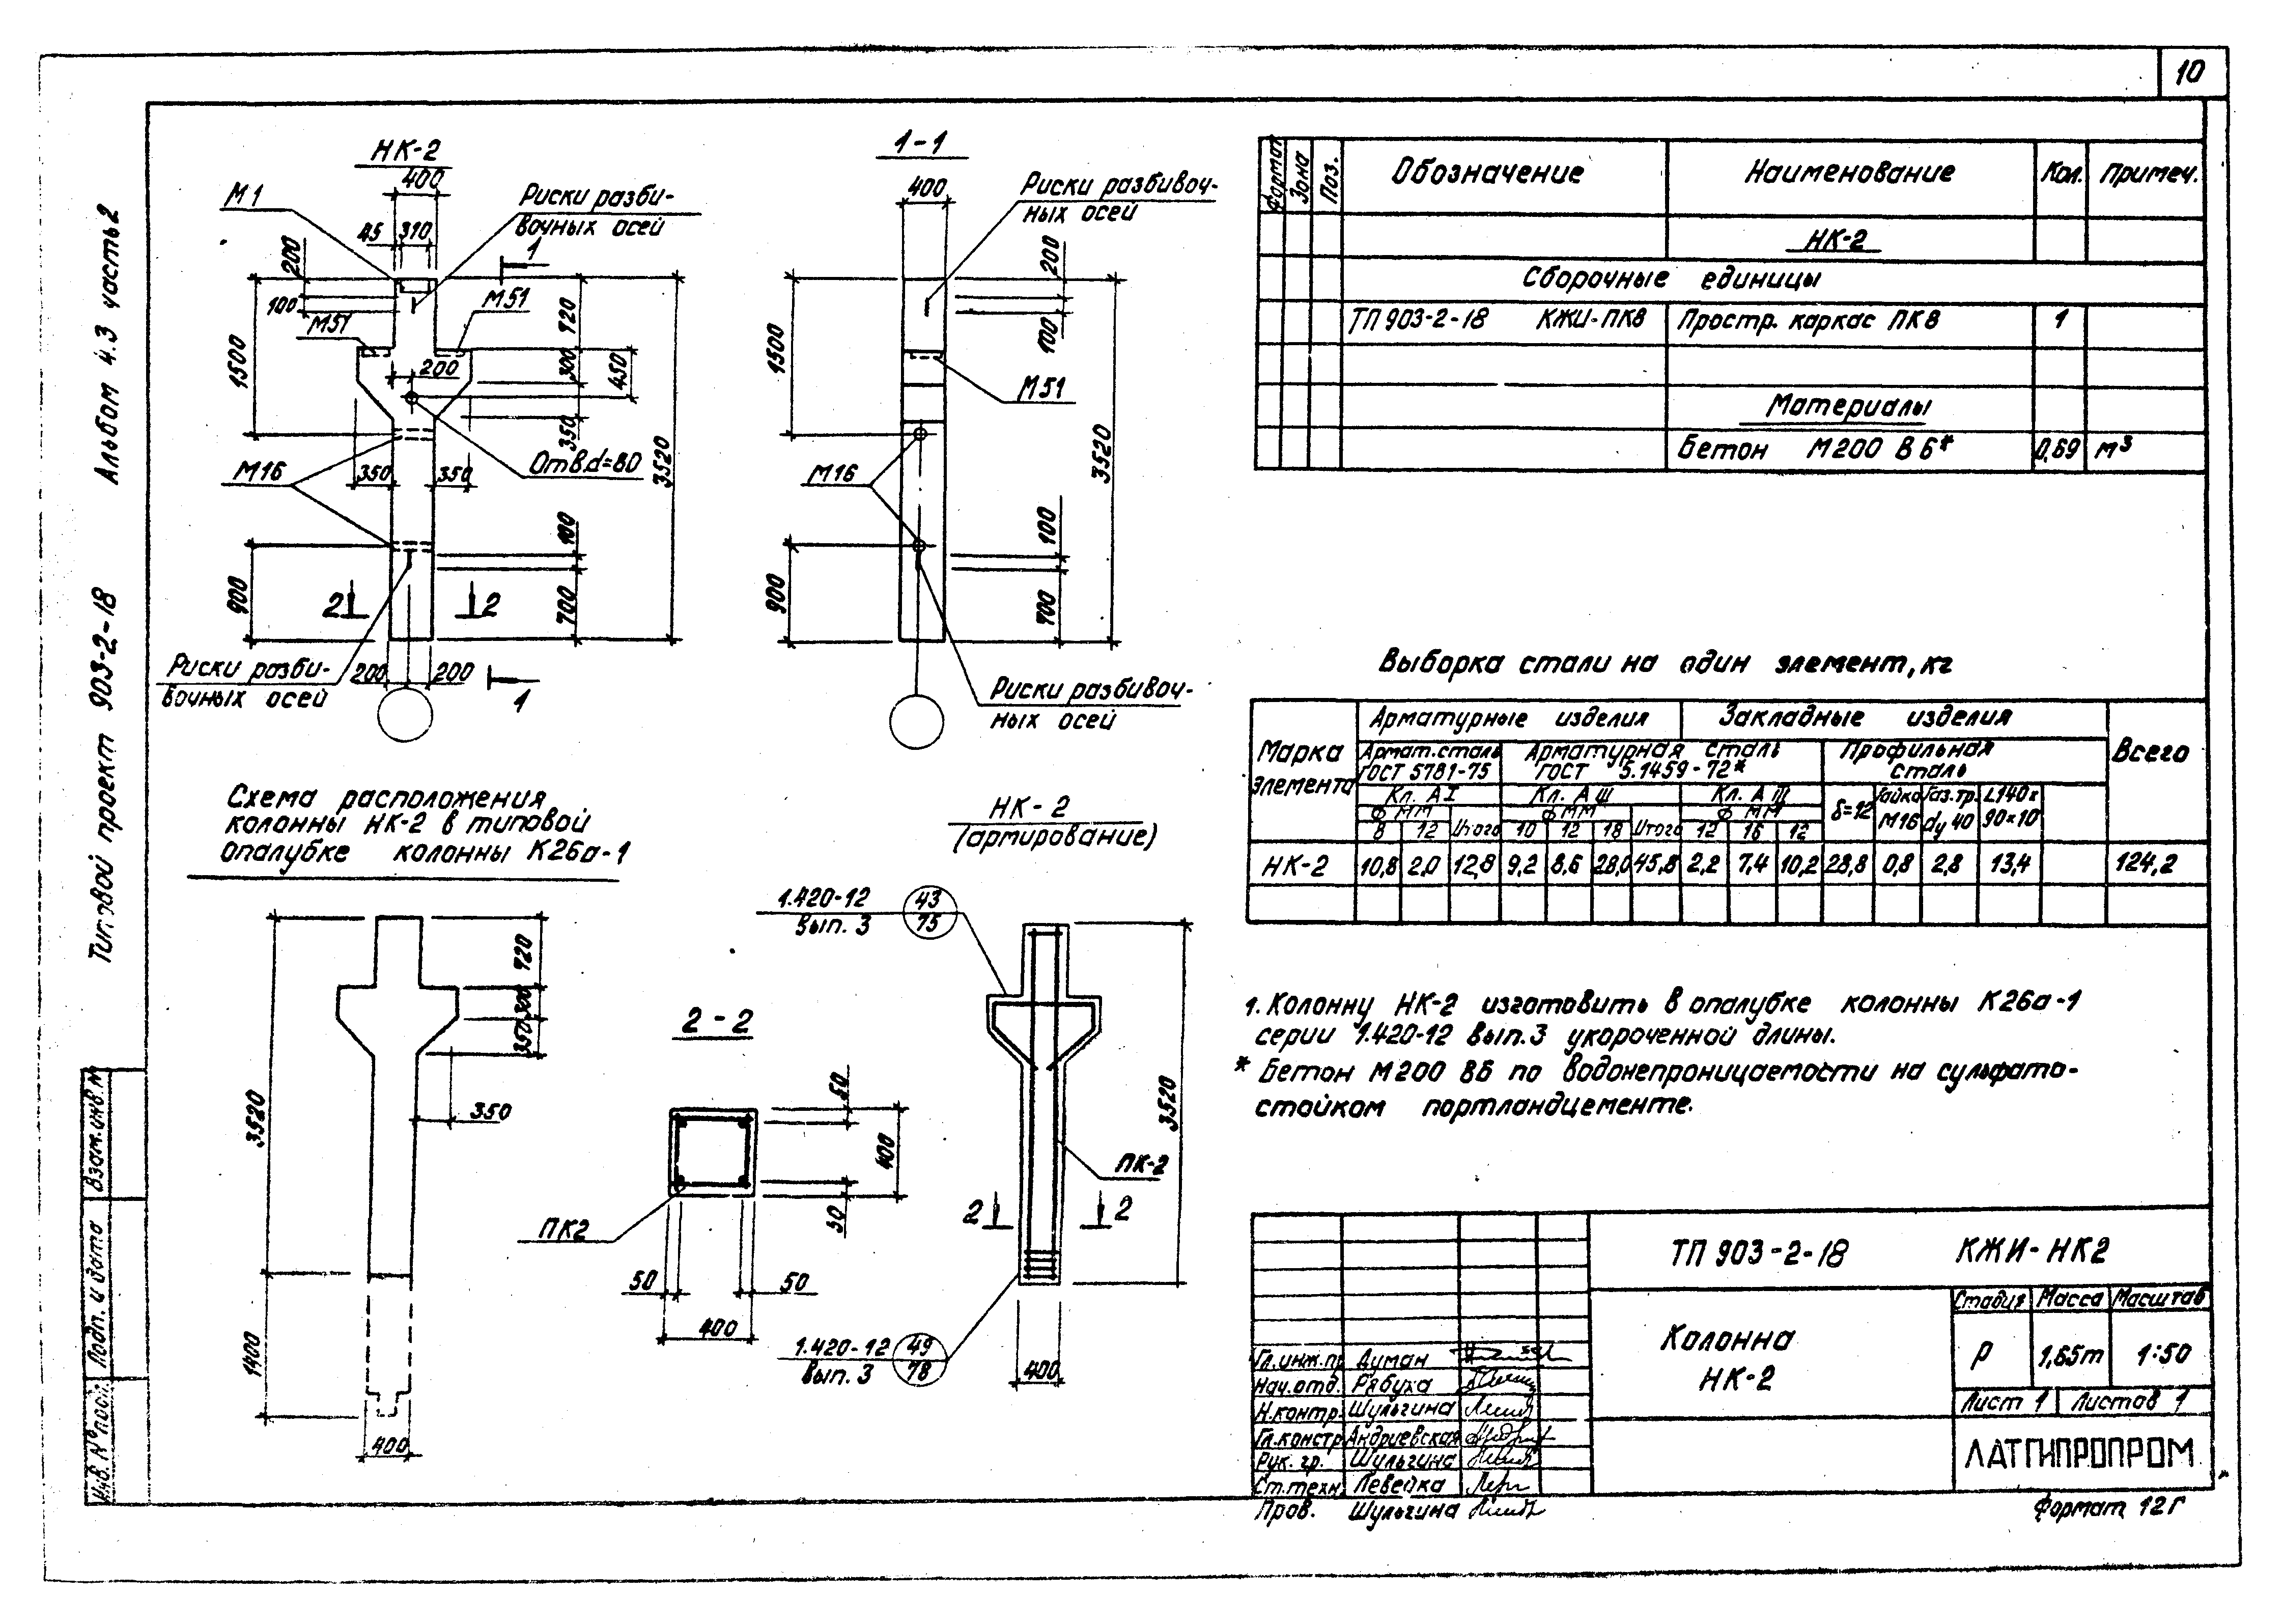 10
Альбом 4.3 часть 2
Типовой проект 903-2-18
НК-2
400
М1
Риски разби-
вочных осей
45 310
200
100
1
М51
М51
1500
720
300
450
200
350
3520
Отв.d=80
350 350
М16
100
900
700
2 2
Риски разби-
вочных осей
200 200
1
1-1
400
Риски разбивоч-
ных осей
200
100
1500
М51
М16
3520
100
900
700
Риски разбивоч-
ных осей
Формат Зона Поз. Обозначение Наименование Кол. Примеч.
НК-2
Сборочные единицы
ТП 903-2-18 КЖИ-ПК8 Простр. каркас ПК8 1
Материалы
Бетон М200 В6* 0,69 м³
Выборка стали на один элемент, кг
Марка элемента Арматурные изделия Закладные изделия Всего
Армат. сталь ГОСТ 5781-75 Арматурная сталь ГОСТ 5.1459-72* Профильная сталь
Кл. АI Кл. АIII Кл. АIII δ=12 Гайка М16 Газ.тр. dу 40 L140х90×10
Ф мм Ф мм Ф мм
8 12 Итого 10 12 18 Итого 12 16 12
НК-2 10,8 2,0 12,8 9,2 8,6 28,0 45,8 2,2 7,4 10,2 28,8 0,8 2,8 13,4 124,2
Схема расположения
колонны НК-2 в типовой
опалубке колонны К26а-1
720
300
350
350
3520
1400
400
2-2
50
400
50
ПК2
50 50
400
НК-2
(армирование)
1.420-12
вып. 3
43
75
3520
ПК-2
2 2
1.420-12
вып. 3
49
78
400
1. Колонну НК-2 изготовить в опалубке колонны К26а-1
серии 1.420-12 вып.3 укороченной длины.
* Бетон М200 В6 по водонепроницаемости на сульфато-
стойком портландцементе.
Взам.инв.№
Подп. и дата
Инв. № посл.
ТП 903-2-18 КЖИ-НК2
Колонна
НК-2
Стадия Масса Масштаб
Р 1,65т 1:50
Лист 1 Листов 1
ЛАТГИПРОПРОМ
Гл.инж.пр Думан
Нач.отд. Рябуха
Н.контр. Шульгина
Гл.констр Андриевская
Рук. гр. Шульгина
Ст.техн. Левейка
Пров. Шульгина
Формат 12Г